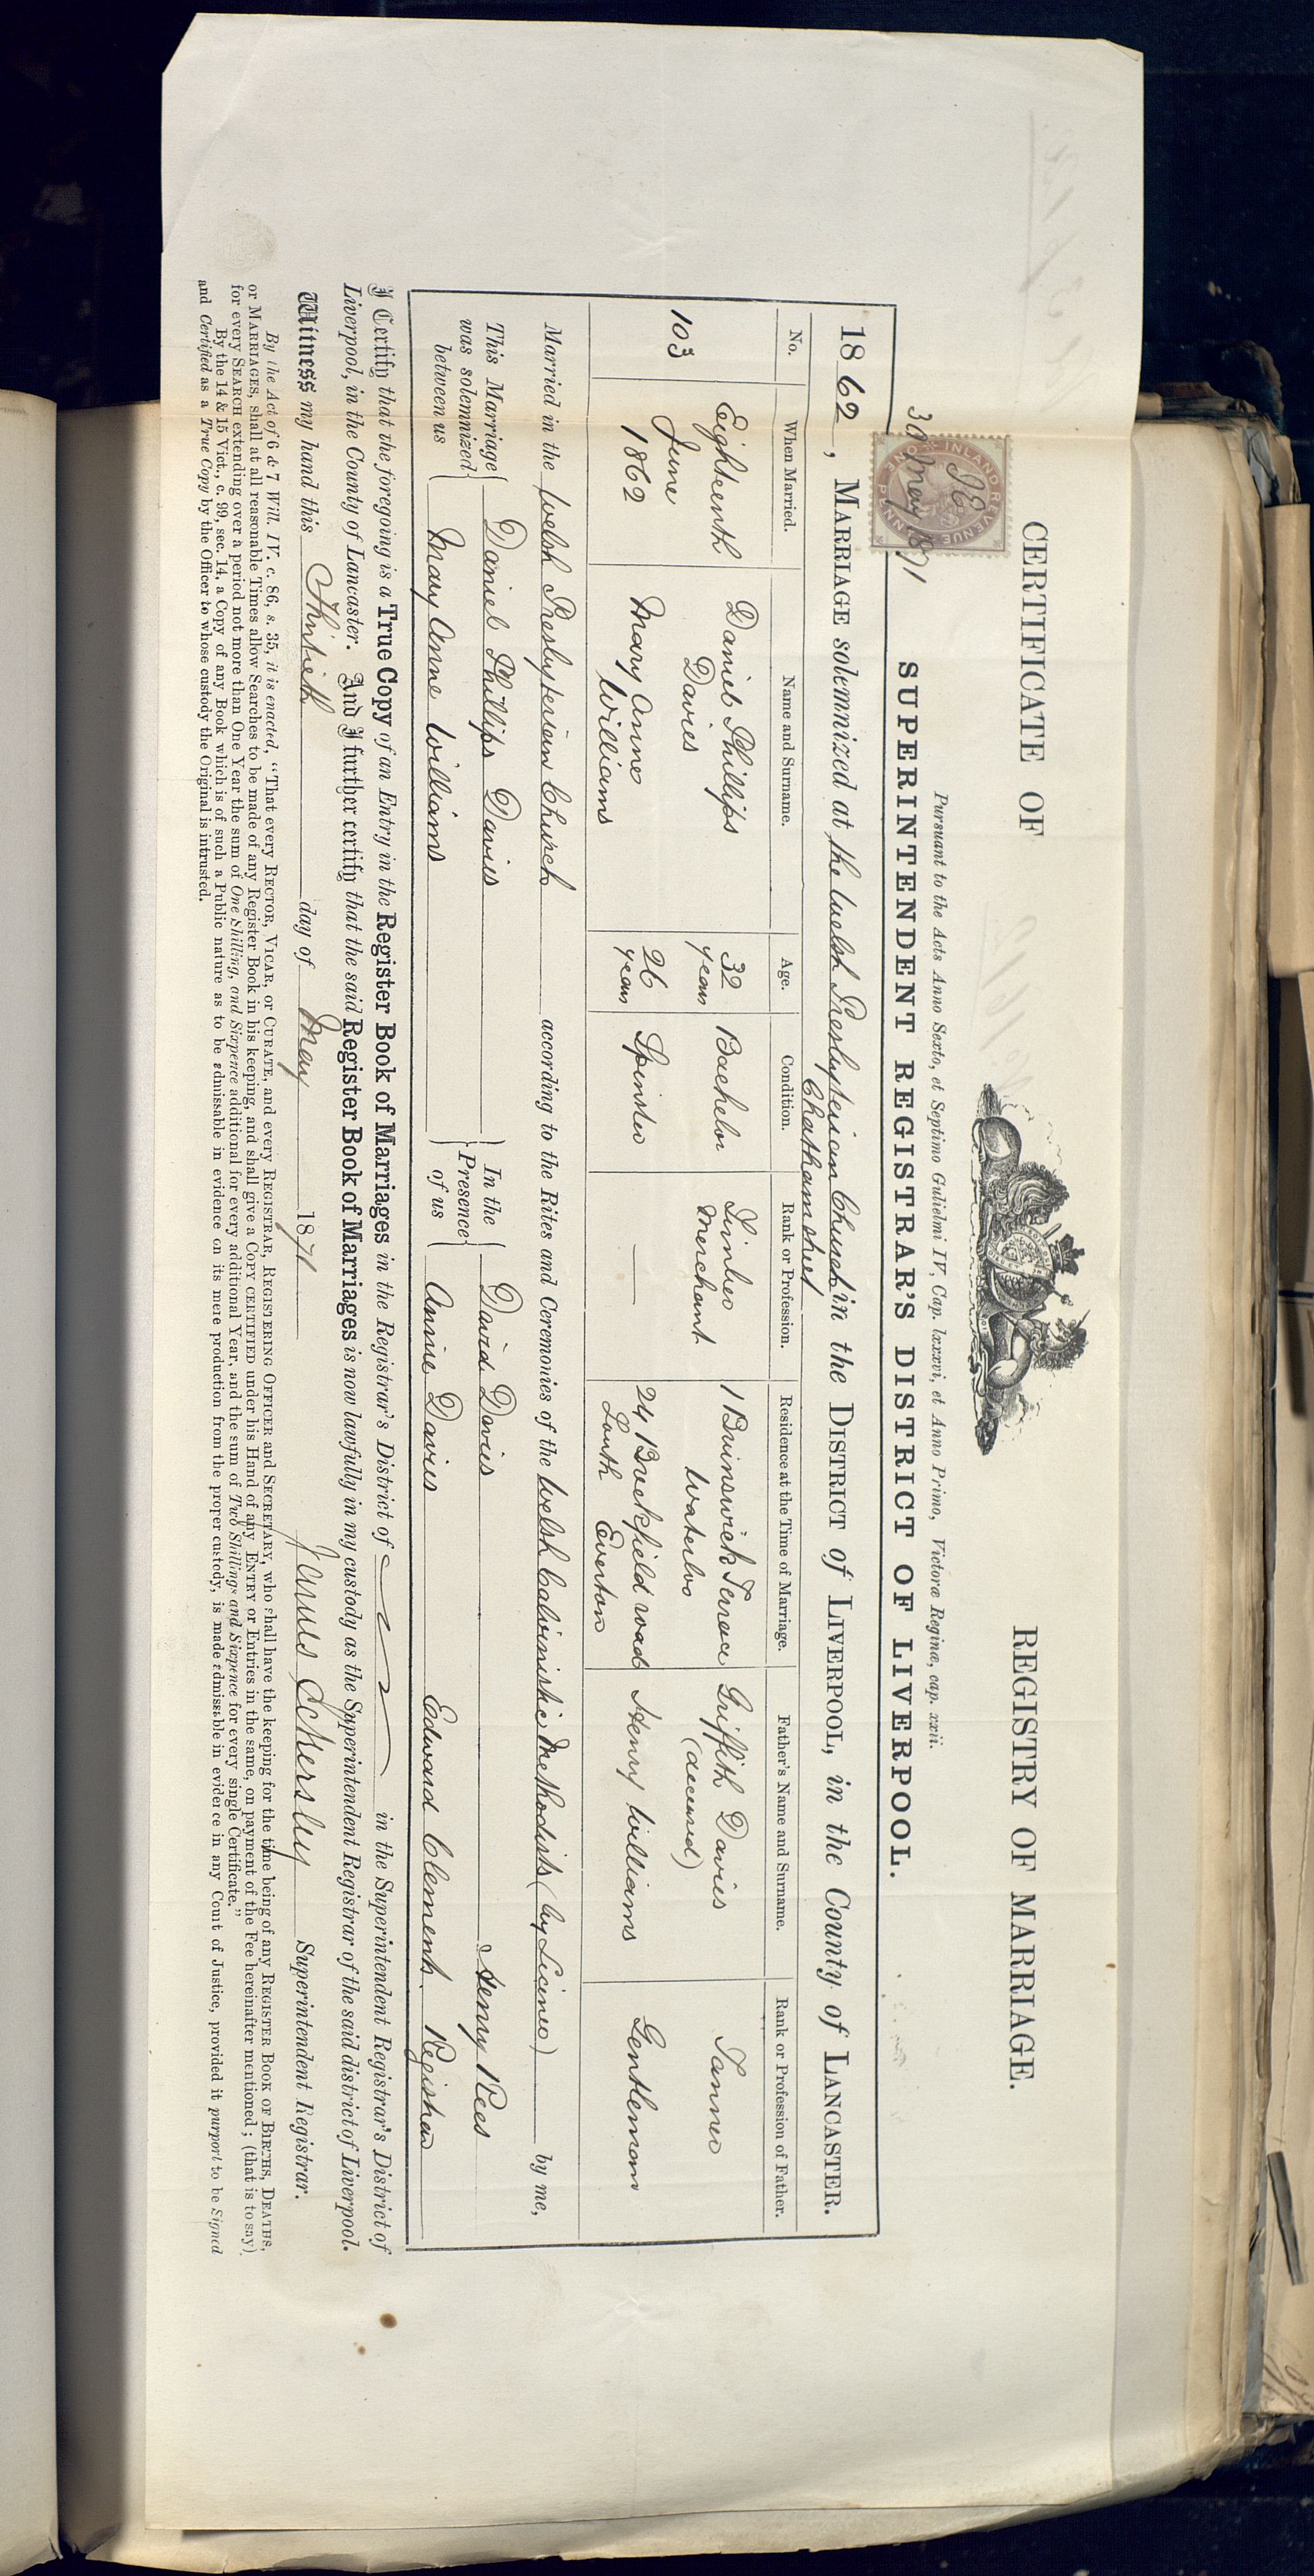 CERTIFICATE OF REGISTRY OF MARRIAGE.
Pursuant to the Acts Anno Sexto, et Septimo Gulielmi IV, Cap. lxxxvi, et Anno Primo, Victoræ Reginæ, cap. xxii.
SUPERINTENDENT REGISTRAR'S DISTRICT OF LIVERPOOL.
INLAND REVENUE
ONE PENNY
JE
30 May 1871
1862, MARRIAGE solemnized at the Welsh Presbyterian Church in the DISTRICT of LIVERPOOL, in the County of LANCASTER.
Chatham street
No. When Married. Name and Surname. Age. Condition. Rank or Profession. Residence at the Time of Marriage. Father's Name and Surname. Rank or Profession of Father.
103
Eighteenth
June
1862
Daniel Phillips
Davies
32
years
Bachelor
Timber
Merchant
1 Brunswick Terrace
Waterloo
Griffith Davies
(deceased)
Tanner
Mary Anne
Williams
26
years
Spinster
—
24 Breckfield road
South Everton
Henry Williams
Gentleman
Married in the Welsh Presbyterian Church according to the Rites and Ceremonies of the Welsh Calvinistic Methodists (by Licence) by me,
This Marriage
was solemnized
between us
Daniel Phillips Davies
Mary Anne Williams
In the
Presence
of us
David Davies
Annie Davies
Henry Rees
Edward Clements. Registrar
I Certify that the foregoing is a True Copy of an Entry in the Register Book of Marriages in the Registrar's District of in the Superintendent Registrar's District of
Liverpool, in the County of Lancaster. And I further certify that the said Register Book of Marriages is now lawfully in my custody as the Superintendent Registrar of the said district of Liverpool.
Witness my hand this Thirtieth day of May 1871 James Eckersley Superintendent Registrar.
By the Act of 6 & 7 Will. IV. c. 86, s. 35, it is enacted, "That every RECTOR, VICAR, or CURATE, and every REGISTRAR, REGISTERING OFFICER and SECRETARY, who shall have the keeping for the time being of any REGISTER BOOK OF BIRTHS, DEATHS,
or MARRIAGES, shall at all reasonable Times allow Searches to be made of any Register Book in his keeping, and shall give a COPY CERTIFIED under his Hand of any ENTRY or Entries in the same, on payment of the Fee hereinafter mentioned; (that is to say)
for every SEARCH extending over a period not more than One Year the sum of One Shilling, and Sixpence additional for every additional Year, and the sum of Two Shillings and Sixpence for every single Certificate."
By the 14 & 15 Vict., c. 99, sec. 14, a Copy of any Book which is of such a Public nature as to be admissable in evidence on its mere production from the proper custody, is made admissible in evidence in any Court of Justice, provided it purport to be Signed
and Certified as a True Copy by the Officer to whose custody the Original is intrusted.